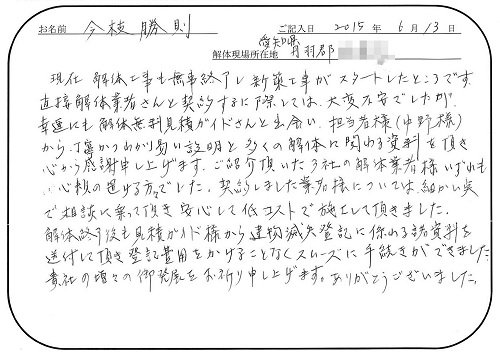 お名前 今枝勝則 ご記入日 2015年 6月 13日
解体現場所在地 愛知県丹羽郡
現在 解体工事も無事終了し新築工事がスタートしたところです。
直接解体業者さんと契約するに際しては、大変不安でしたが、
幸運にも解体無料見積ガイドさんと出会い、担当者様(中野様)
から丁寧かつわかり易い説明と多くの解体に関わる資料を頂き
心から感謝申し上げます。ご紹介頂いた3社の解体業者様いずれも
心軽の置ける方でした。契約しました業者様については、細かい点
で相談に乗って頂き安心して低コストで施工して頂きました。
解体終了後も見積ガイド様から建物滅失登記に係わる諸資料を
送付して頂き登記費用をかけることなくスムーズに手続きができました。
貴社の増々の御発展をお祈り申し上げます。ありがとうございました。